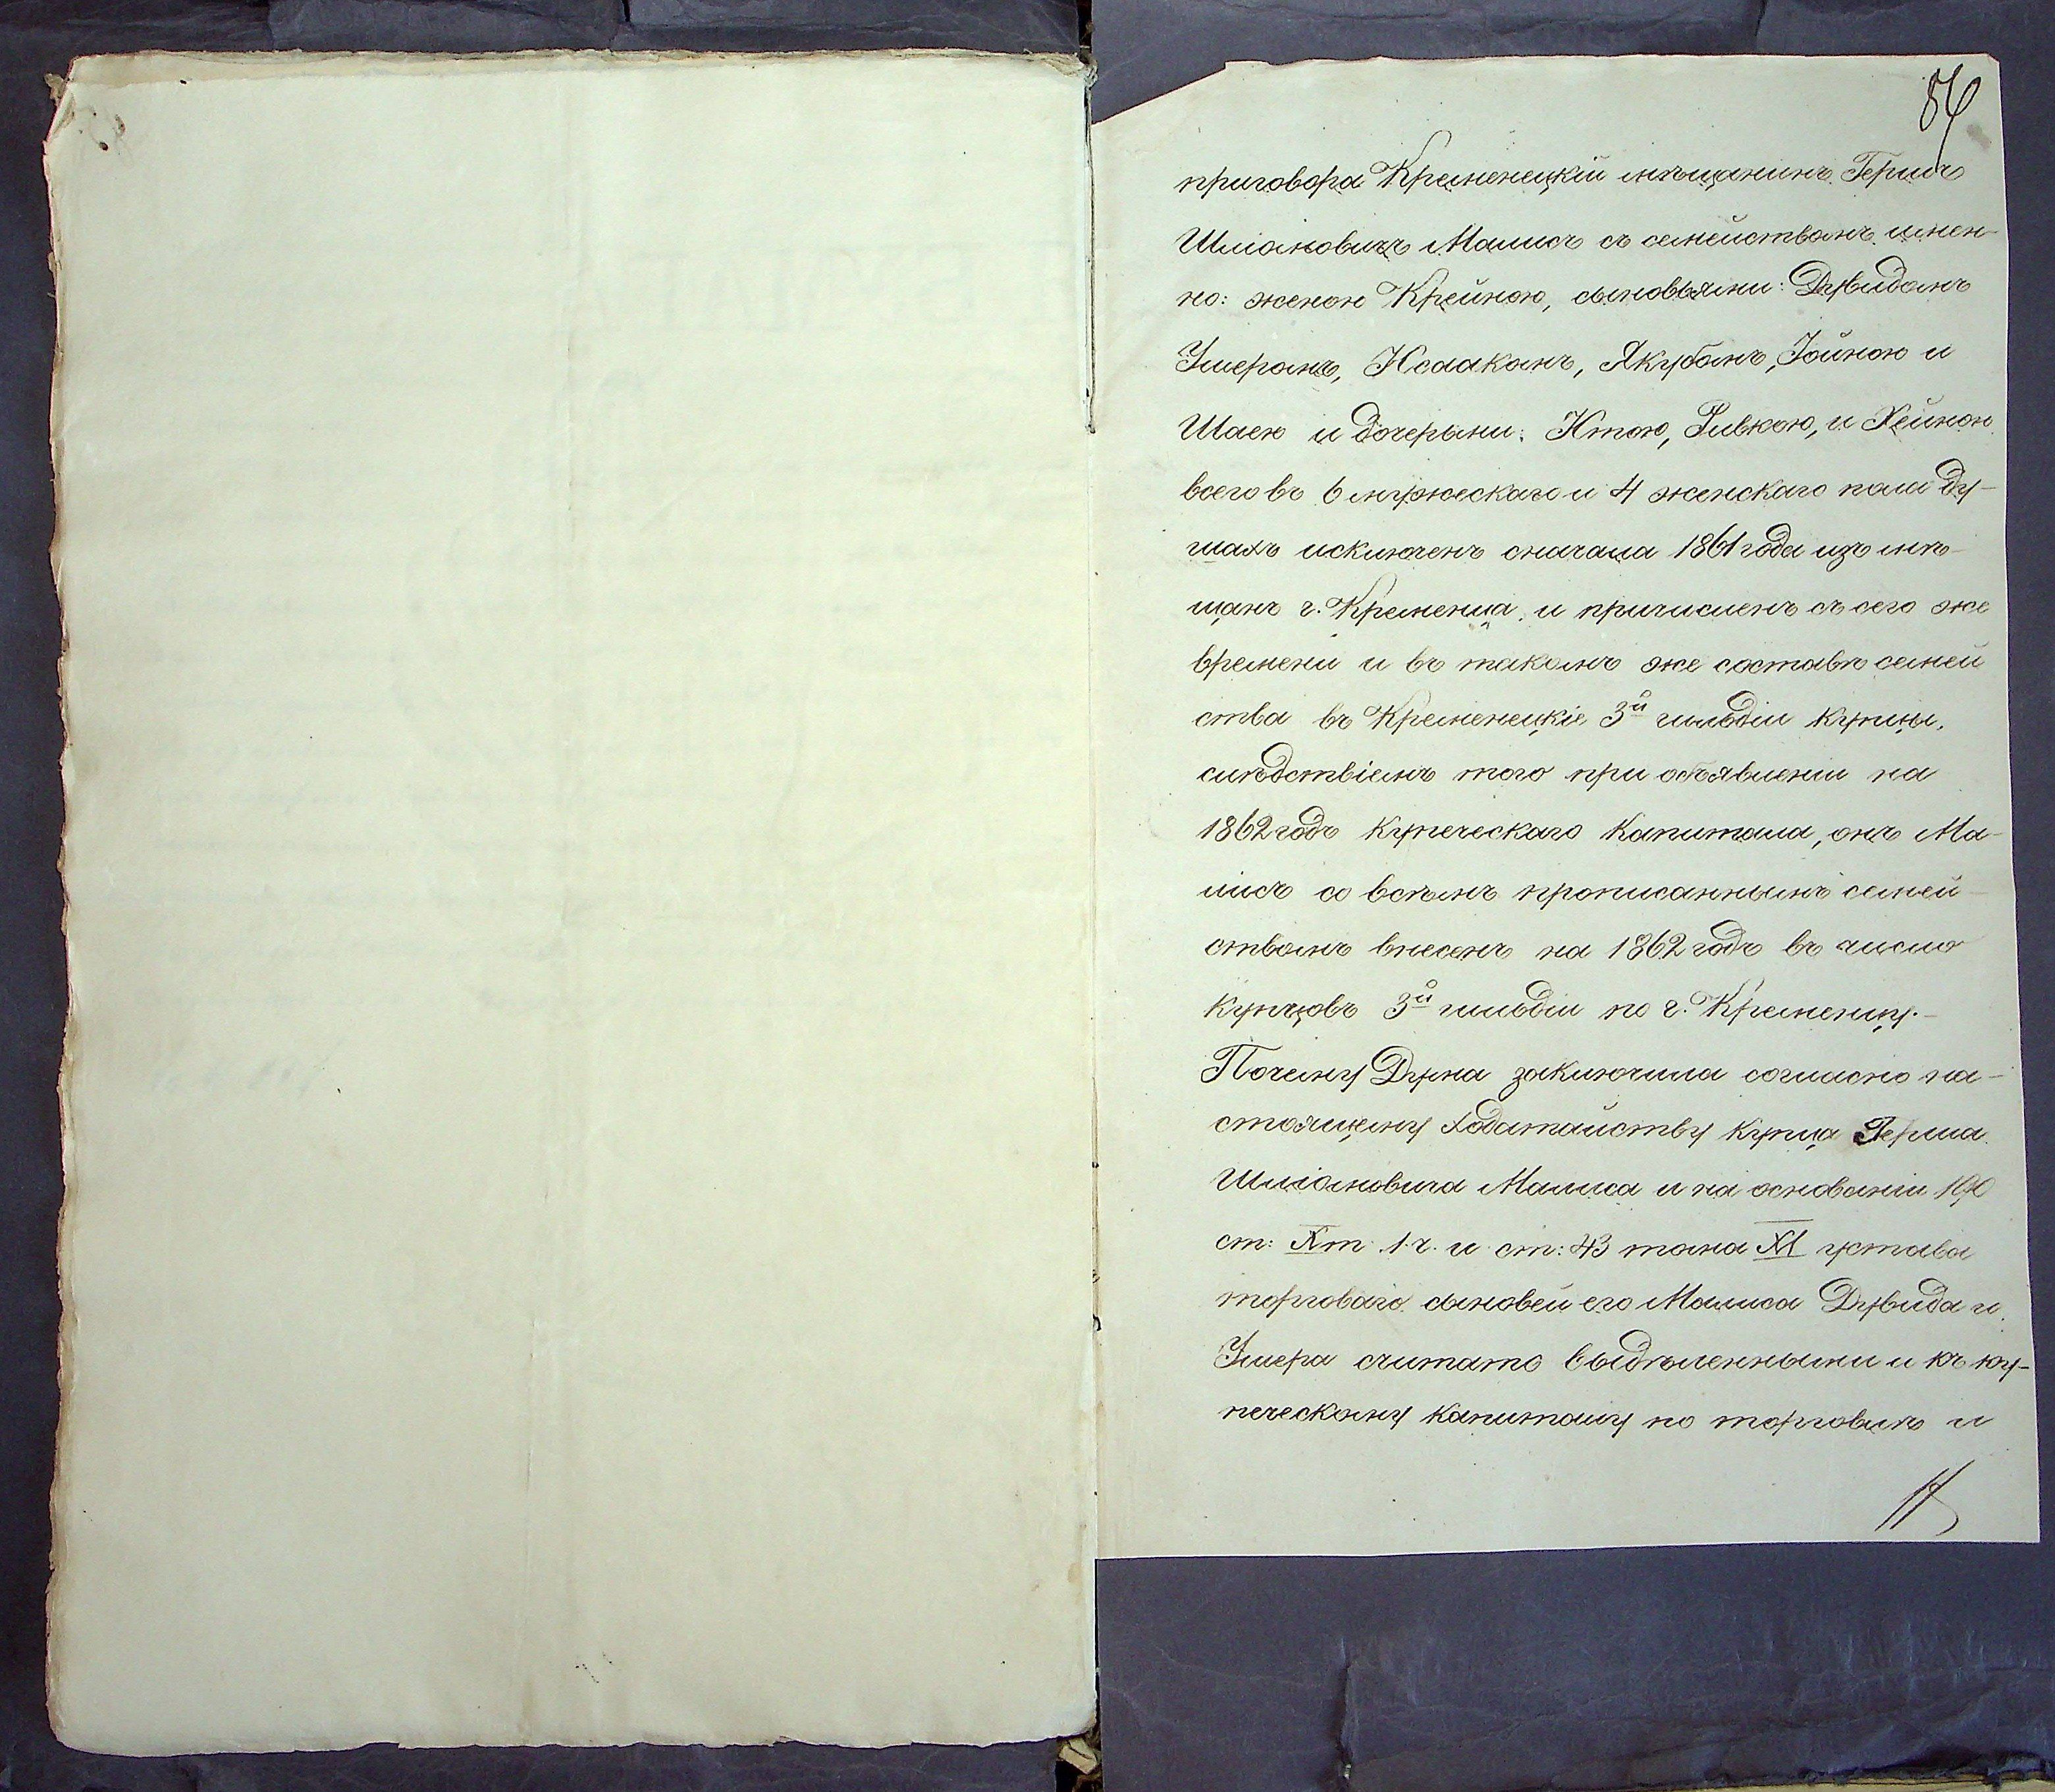 84
приговора Кременецкій мѣщанинъ Гершъ
Шліомовичъ Малисъ съ семействомъ имен-
но: женою Крейною, сыновьями: Дувидомъ
Ушеромъ, Исаакомъ, Якубомъ, Іойною и
Шаею и дочерьми: Итою, Ривкою, и Хейною
всего въ 6 мужескаго и 4 женскаго пола ду-
шахъ исключенъ сначала 1861 года изъ мѣ-
щанъ г. Кременца, и причисленъ съ сего же
времени и въ такомъ же составѣ семей
ства въ Кременецкіе 3й гильдіи купцы,
слѣдствіемъ того при объявленіи на
1862 годъ купеческаго капитала, онъ Ма-
лисъ со всѣмъ прописаннымъ семей-
ствомъ внесенъ на 1862 годъ въ число
купцовъ 3й гильдіи по г. Кременцу.-
Почему Дума заключила согласно на-
стоящему ходатайству купца Герша
Шліомовича Малиса и на основаніи 190
ст: X т. 1 ч. и ст: 43 тома XI устава
торговаго сыновей его Малиса Дувида и
Ушера считать выдѣленными и къ ку-
печескому капиталу по торговлѣ и